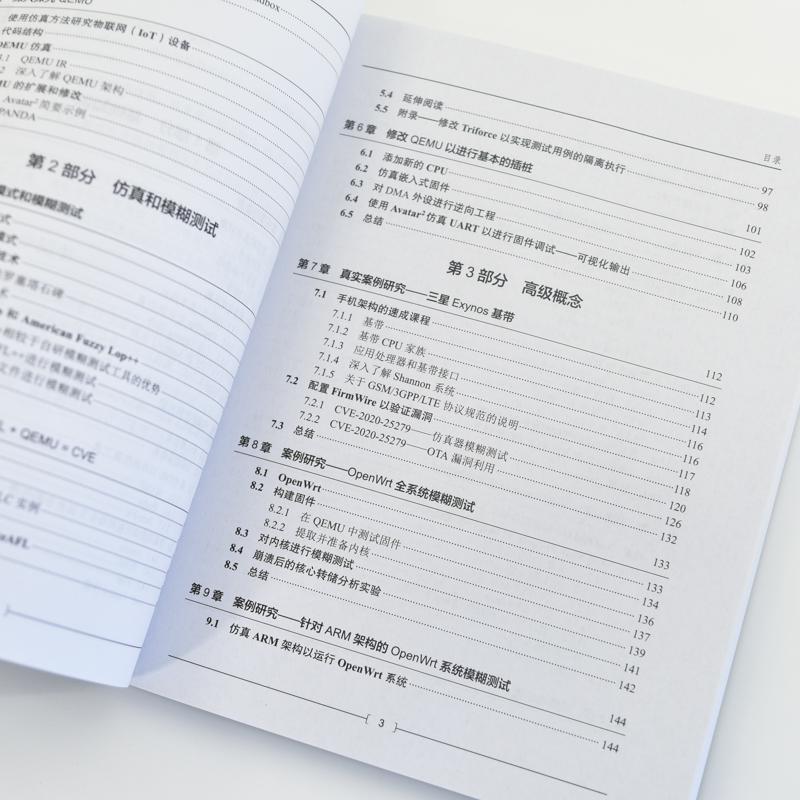 使用仿真方法研究物联网（IoT）设备
代码结构
QEMU 仿真
QEMU IR
深入了解 QEMU 架构
的扩展和修改
Avatar² 简要示例
PANDA
第 2 部分 仿真和模糊测试
模式和模糊测试
和 American Fuzzy Lop++
相较于自研模糊测试工具的优势
进行模糊测试
文件进行模糊测试
+ QEMU = CVE
实例
目录
5.4 延伸阅读 97
5.5 附录——修改 Triforce 以实现测试用例的隔离执行 98
第 6 章 修改 QEMU 以进行基本的插桩 101
6.1 添加新的 CPU 102
6.2 仿真嵌入式固件 103
6.3 对 DMA 外设进行逆向工程 106
6.4 使用 Avatar² 仿真 UART 以进行固件调试——可视化输出 108
6.5 总结 110
第 3 部分 高级概念
第 7 章 真实案例研究——三星 Exynos 基带 112
7.1 手机架构的速成课程 112
7.1.1 基带 113
7.1.2 基带 CPU 家族 114
7.1.3 应用处理器和基带接口 116
7.1.4 深入了解 Shannon 系统 116
7.1.5 关于 GSM/3GPP/LTE 协议规范的说明 117
7.2 配置 FirmWire 以验证漏洞 118
7.2.1 CVE-2020-25279——仿真器模糊测试 120
7.2.2 CVE-2020-25279——OTA 漏洞利用 126
7.3 总结 132
第 8 章 案例研究——OpenWrt 全系统模糊测试 133
8.1 OpenWrt 133
8.2 构建固件 134
8.2.1 在 QEMU 中测试固件 136
8.2.2 提取并准备内核 137
8.3 对内核进行模糊测试 139
8.4 崩溃后的核心转储分析实验 141
8.5 总结 142
第 9 章 案例研究——针对 ARM 架构的 OpenWrt 系统模糊测试 144
9.1 仿真 ARM 架构以运行 OpenWrt 系统 144
3